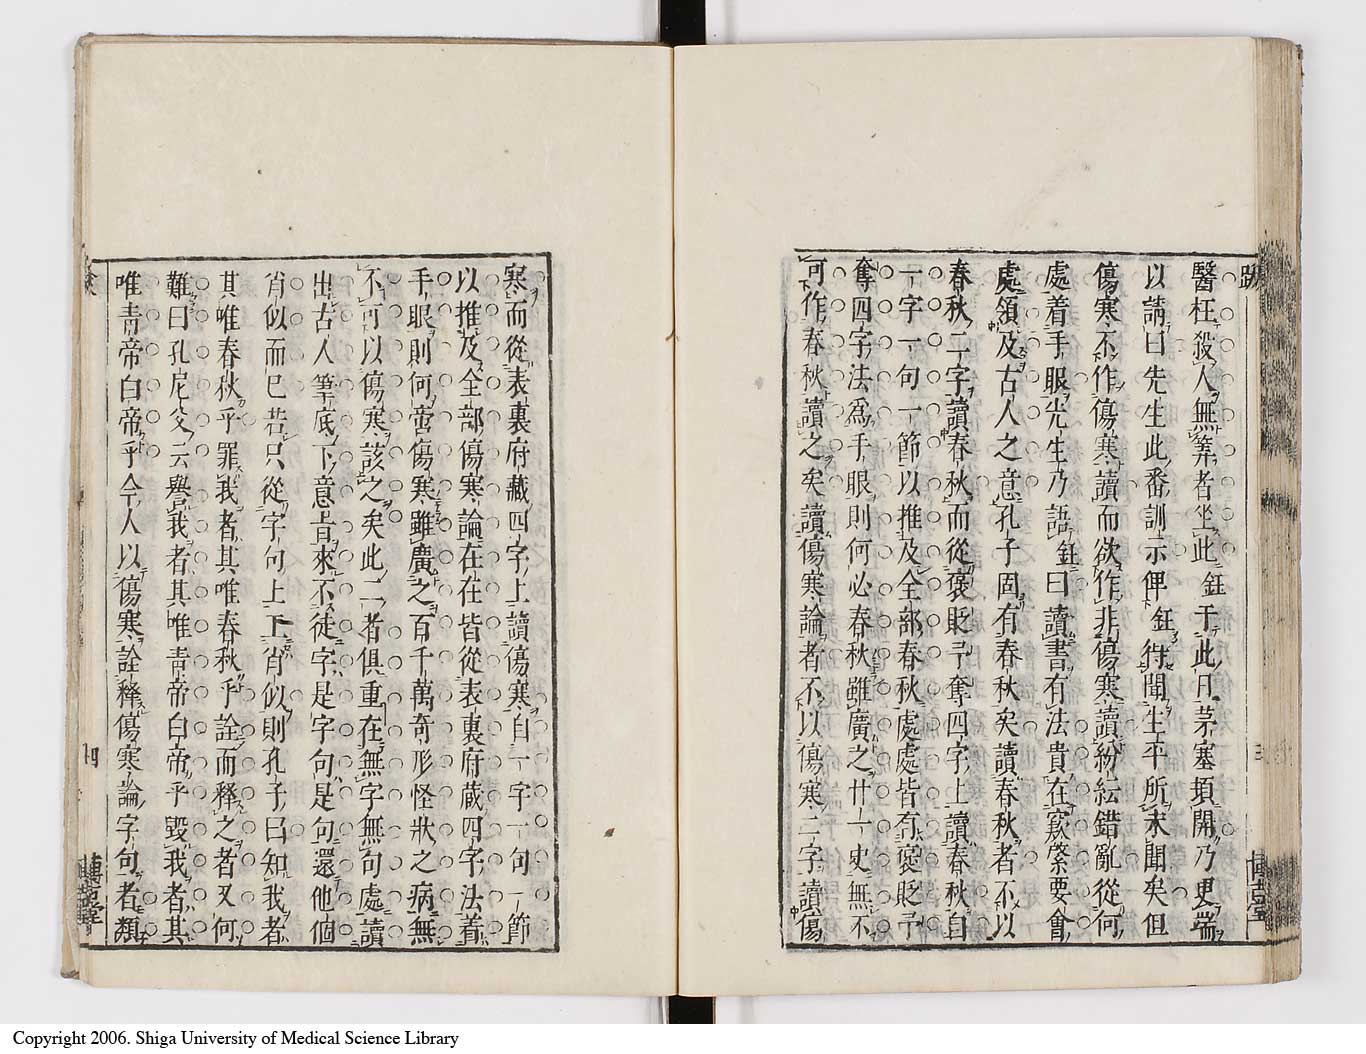 醫枉殺人無筭者坐此鈺于此月茅塞頓開乃更端
以請曰先生此番訓示俾鈺得聞生平所未聞矣但
傷寒不作傷寒讀而欲作非傷寒讀紛紜錯亂從何
處着手眼先生乃語鈺曰讀書有法貴在窾綮要會
處領及古人之意孔子固有春秋矣讀春秋者不以
春秋二字讀春秋而從褒貶予奪四字上讀春秋自
一字一句一節以推及全部春秋處處皆有褒貶予
奪四字法為手眼則何必春秋雖廣之廿一史無不
可作春秋讀之矣讀傷寒論者不以傷寒二字讀傷
寒而從表裏府藏四字上讀傷寒自一字一句一節
以推及全部傷寒論在在皆從表裏府蔵四字法着
手眼則何啻傷寒雖廣之百千萬奇形怪狀之病無
不可以傷寒該之矣此二者俱重在無字無句處讀
出古人筆底下意旨來不徒字是字句是句還他個
肖似而已若只從字句上下肖似則孔子曰知我者
其唯春秋乎罪我者其唯春秋乎詮而釋之者又何
難曰孔尼父云譽我者其唯青帝白帝乎毀我者其
唯青帝白帝乎今人以傷寒詮釋傷寒論字句者類
跋
三
四
Copyright 2006. Shiga University of Medical Science Library